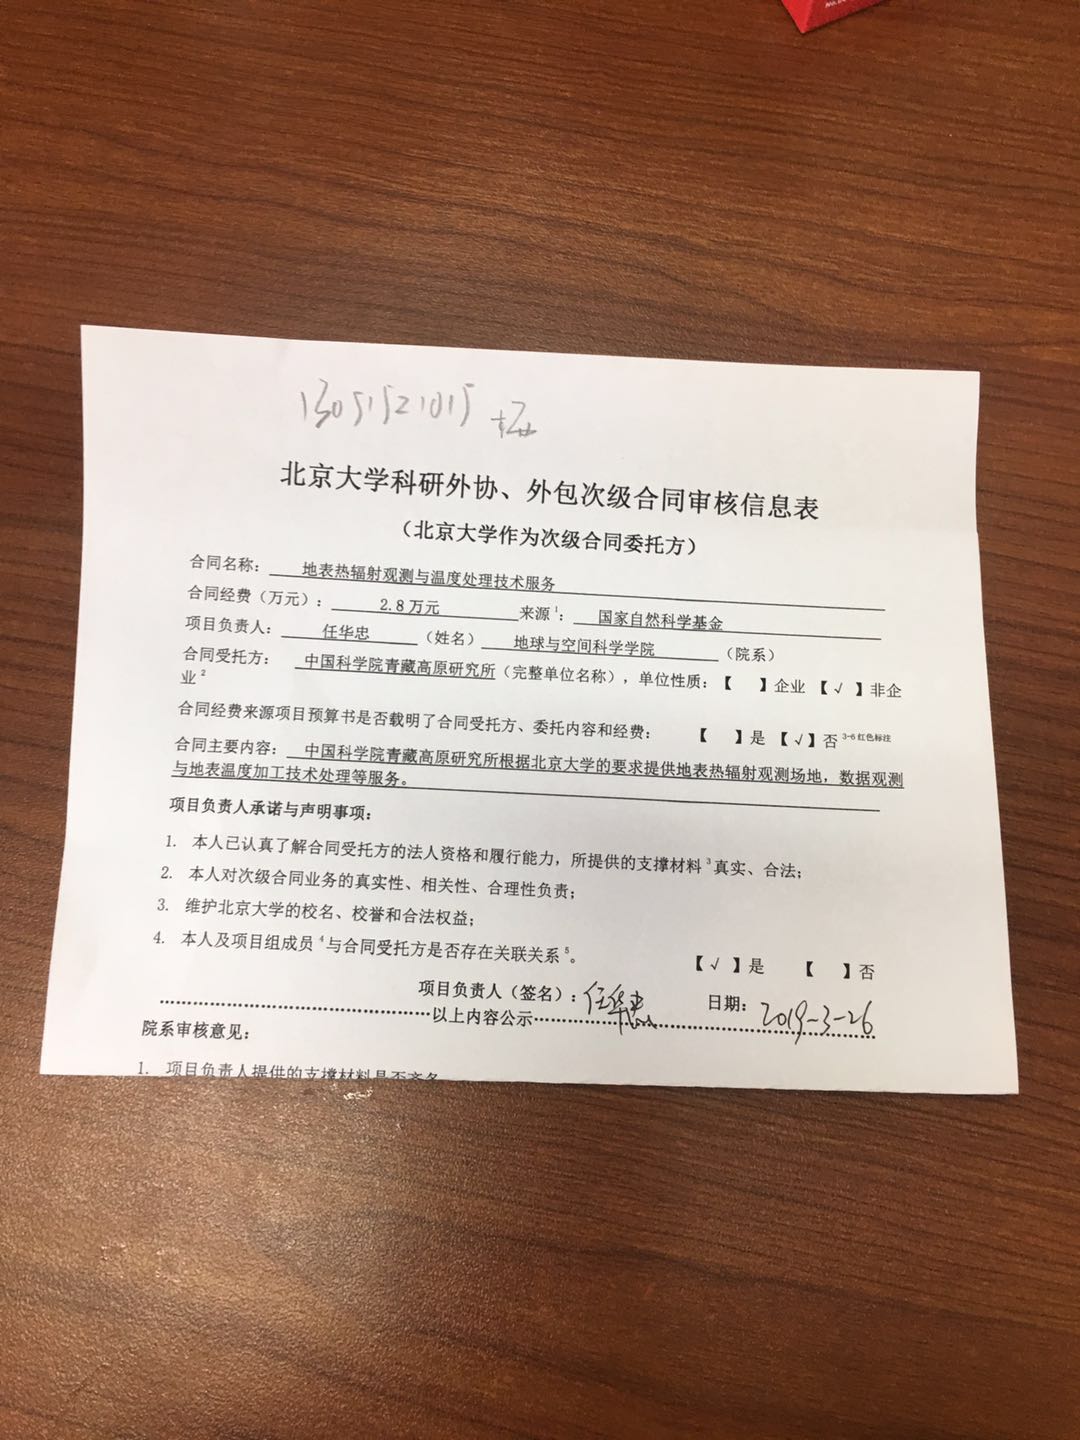 13051521015
北京大学科研外协、外包次级合同审核信息表
（北京大学作为次级合同委托方）
合同名称： 地表热辐射观测与温度处理技术服务
合同经费（万元）： 2.8万元 来源1： 国家自然科学基金
项目负责人： 任华忠 （姓名） 地球与空间科学学院 （院系）
合同受托方： 中国科学院青藏高原研究所（完整单位名称），单位性质：【 】企业 【√】非企
业2
合同经费来源项目预算书是否载明了合同受托方、委托内容和经费： 【 】是 【√】否 3-6红色标注
合同主要内容： 中国科学院青藏高原研究所根据北京大学的要求提供地表热辐射观测场地，数据观测
与地表温度加工技术处理等服务。
项目负责人承诺与声明事项：
1. 本人已认真了解合同受托方的法人资格和履行能力，所提供的支撑材料3真实、合法；
2. 本人对次级合同业务的真实性、相关性、合理性负责；
3. 维护北京大学的校名、校誉和合法权益；
4. 本人及项目组成员4与合同受托方是否存在关联关系5。 【√】是 【 】否
项目负责人（签名）：任华忠 日期：2019-3-26
以上内容公示
院系审核意见：
1. 项目负责人提供的支撑材料是否齐备